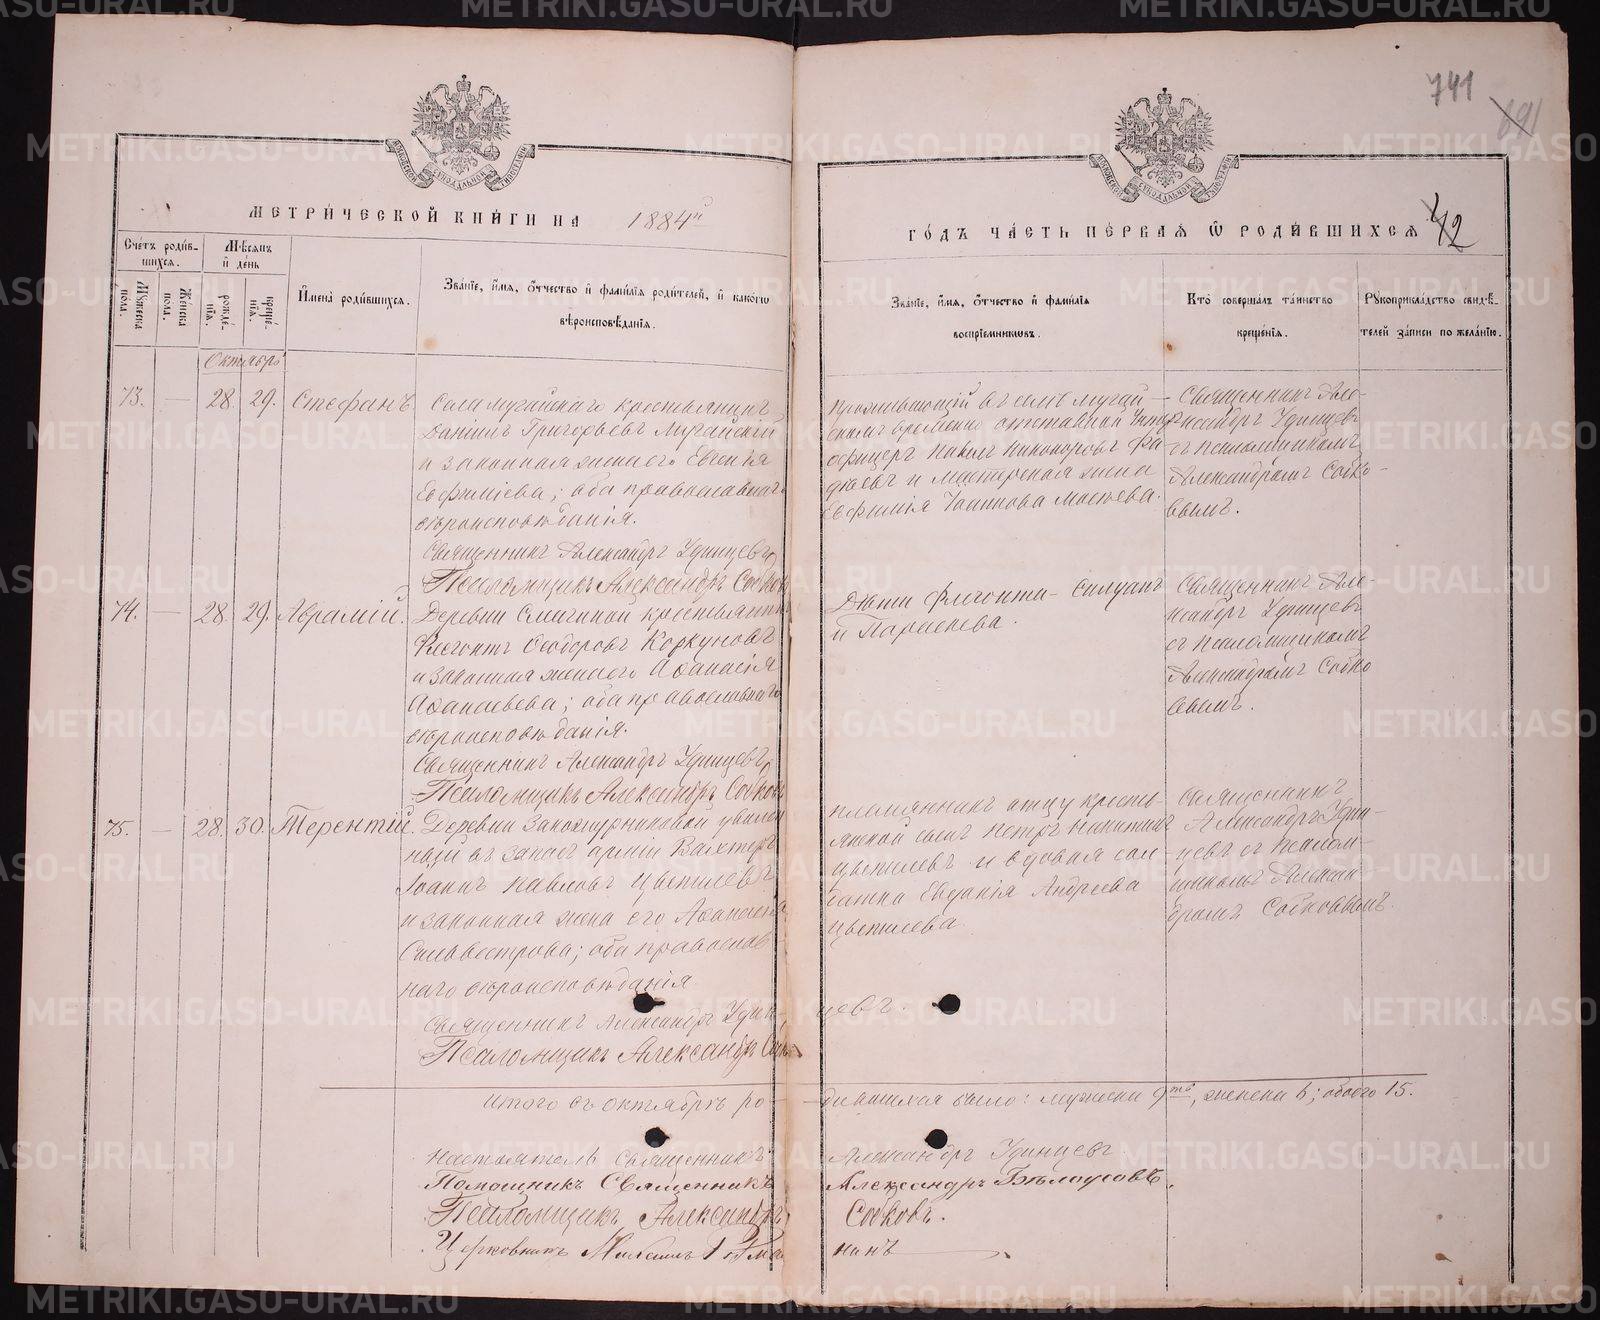 741
МЕТРИЧЕСКОЙ КНИГИ НА 1884й
ГОДЪ ЧАСТЬ ПЕРВАЯ Ѡ РОДИВШИХСЯ
42
Счетъ родив-
шихся.
Мѣсяцъ
и день
Мужеска
пола.
Женска
пола.
рожде-
нія.
креще-
нія.
Имена родившихся.
Званіе, имя, отчество и фамилія родителей, и какого
вѣроисповѣданія.
Званіе, имя, отчество и фамилія
воспріемниковъ.
Кто совершалъ таинство
крещенія.
Рукоприкладство свидѣ-
телей записи по желанію.
Октябрь
73. — 28. 29. Стефанъ
Села Мугайскаго крестьянинъ
Даніилъ Григорьевъ Мугайскій
и законная жена его Евгенія
Евфиміева; оба православнаго
вѣроисповѣданія.
Священникъ Александръ Удинцевъ,
Псаломщикъ Александръ Собковъ
Проживающій въ селѣ Мугай-
скомъ временно отставной Унтеръ
офицеръ Павелъ Никоноровъ
и мастерская жена
Евфимія Іоаннова
Священникъ Але-
ксандръ Удинцевъ
съ псаломщикомъ
Александромъ Собко-
вымъ.
74. — 28. 29. Аврамій.
Деревни Смычиной крестьянинъ
Флегонтъ Ѳеодоровъ Коркуновъ
и законная жена его Аѳанасія
Аѳанасьева; оба православнаго
вѣроисповѣданія.
Священникъ Александръ Удинцевъ,
Псаломщикъ Александръ Собковъ
Дѣти Флегонта - Силуанъ
и Параскева.
Священникъ Але-
ксандръ Удинцевъ
съ псаломщикомъ
Александромъ Собко
вымъ.
75. — 28. 30. Терентій.
Деревни увален
ный въ запасъ арміи Вахтеръ
Іоаннъ Павловъ Цвѣтилевъ
и законная жена его Аѳанасія
Сильвестрова; оба православ
наго вѣроисповѣданія
Священникъ Александръ Удин-цевъ.
Псаломщикъ Александръ
племянникъ отцу кресть-
янской сынъ Петръ Никитинъ
Цвѣтилевъ и вдовая сол-
датка Евдокія Андреева
Цвѣтилева
Священникъ
Александръ Удин-
цевъ съ Псалом-
щикомъ Алексан-
дромъ Собковымъ.
Итого въ октябрѣ ро-дившихся было: мужеска 9ть, женска 6; обоего 15.
Настоятель Священникъ Александръ Удинцевъ
Помощникъ Священникъ Александръ Бѣлоусовъ.
Псаломщикъ Александръ Собковъ.
Церковникъ Михаилъ
METRIKI.GASO-URAL.RU